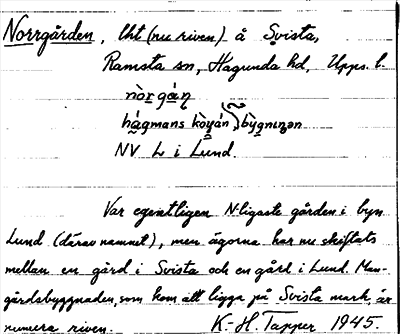 Norrgården, lht (nu riven) å Svista,
Ramsta sn, Hagunda hd, Upps. l.
nòrgá̱ṇ
há̱gmans kò̱ŋán), bỳ̱gnɩŋən
NV L i Lund.
Var egentligen N-ligaste gården i byn
Lund (därav namnet), men ägorna har nu skiftats
mellan en gård i Svista och en gård i Lund. Man-
gårdsbyggnaden, som kom att ligga på Svista mark, är
numera riven. K.-H. Tapper 1945.